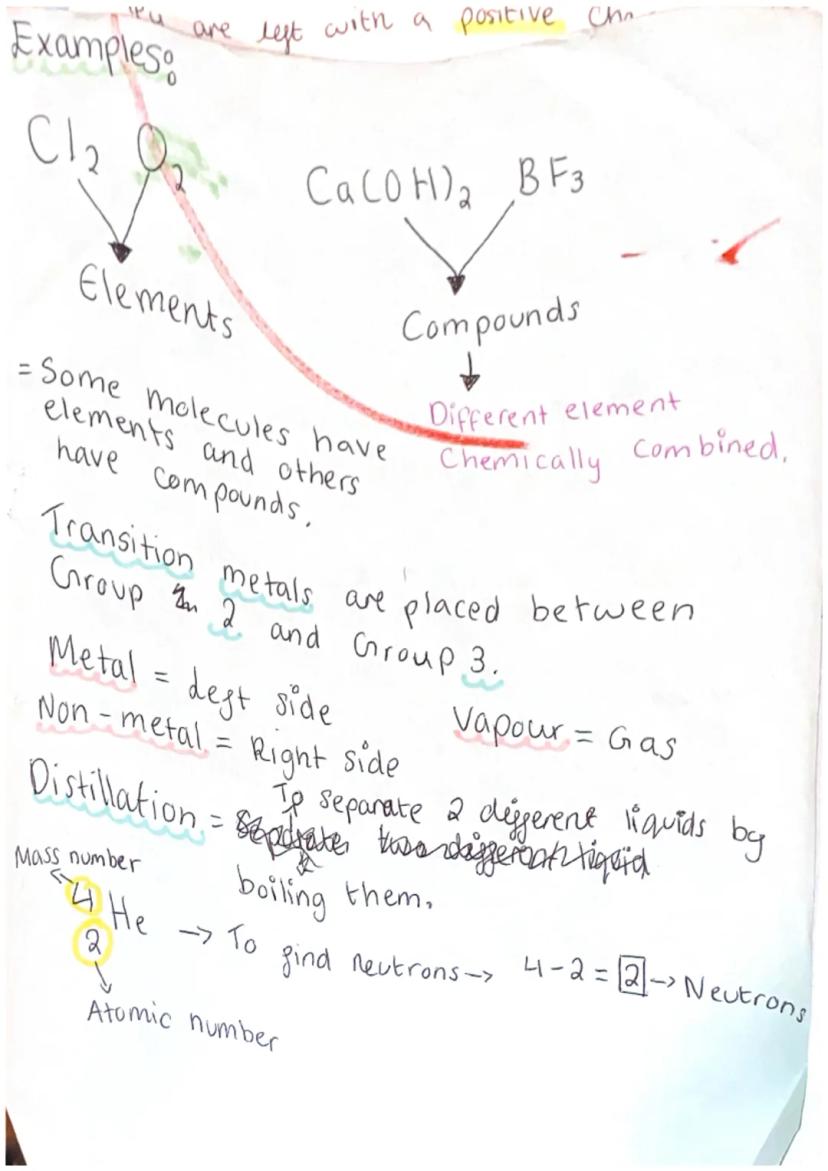 are left with a positive
Examples:
Cl2 O2
Elements
Ca(OH)2 BF3
Compounds
Different element
Chemically combined.
= Some molecules have
elements and others
have compounds.
Transition metals are placed between
Group 2 and Group 3.
Metal = left side
Non-metal = Right side
Vapour = Gas
Distillation = To separate 2 different liquids by
boiling them.
Mass number
4
2 He → To find neutrons → 4-2 = 2 → Neutrons
Atomic number